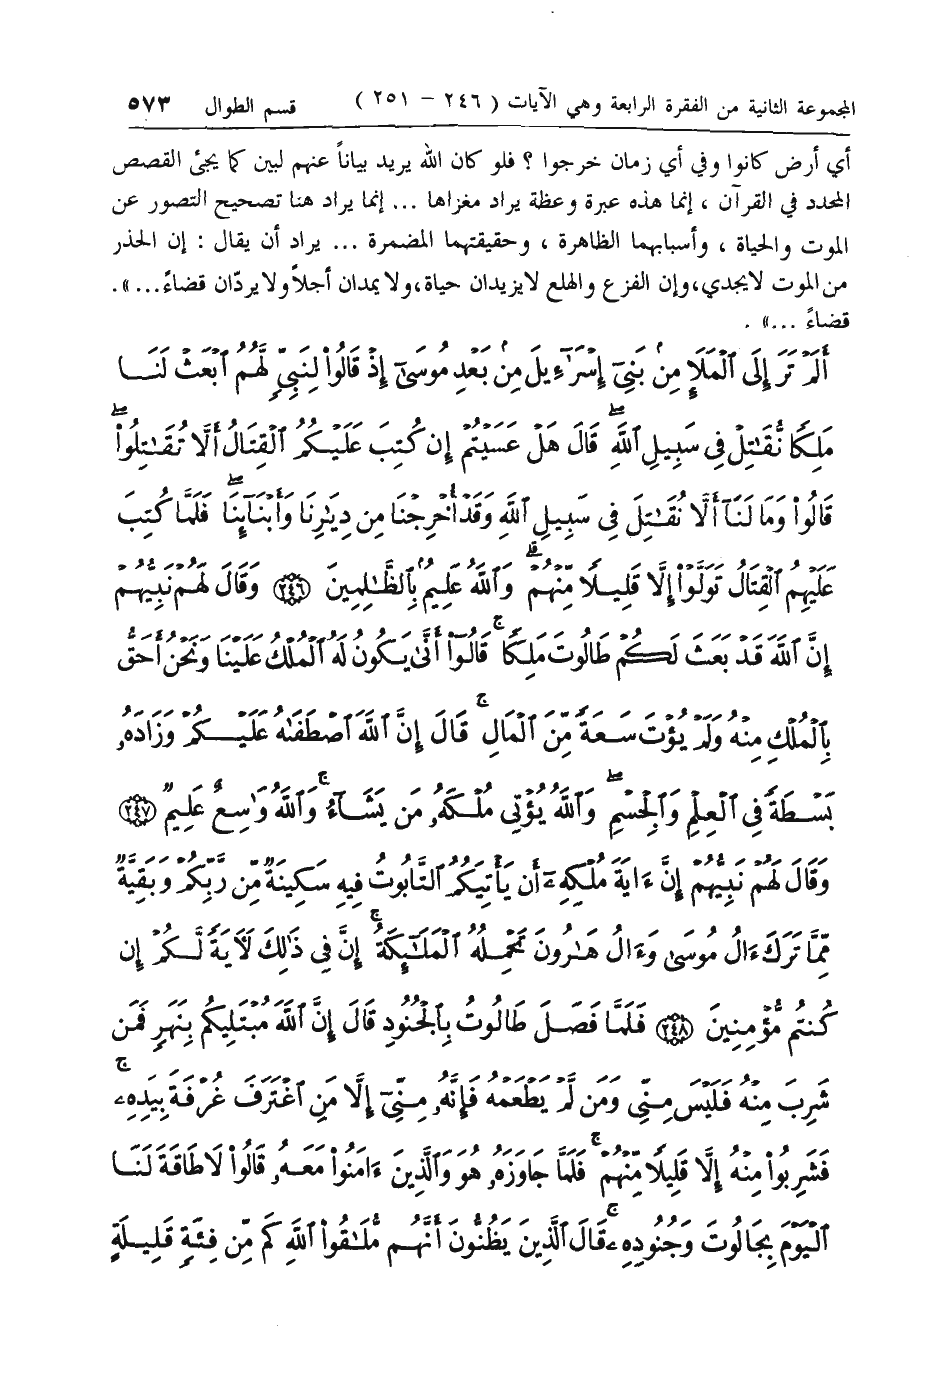 المجموعة الثانية من الفقرة الرابعة وهي الآيات ( ٢٤٦ - ٢٥١ ) قسم الطوال ٥٧٣
أي أرض كانوا وفي أي زمان خرجوا ؟ فلو كان الله يريد بياناً عنهم لبين كما يجئ القصص
المحدد في القرآن ، إنما هذه عبرة وعظة يراد مغزاها ... إنما يراد هنا تصحيح التصور عن
الموت والحياة ، وأسبابهما الظاهرة ، وحقيقتهما المضمرة ... يراد أن يقال : إن الحذر
من الموت لايجدي،وإن الفزع والهلع لايزيدان حياة،ولايمدان أجلاًولايردّان قضاءً...».
قضاءً ...» .
أَلَمْ تَرَ إِلَى ٱلْمَلَإِ مِنۢ بَنِىٓ إِسْرَٰٓءِيلَ مِنۢ بَعْدِ مُوسَىٰٓ إِذْ قَالُوا۟ لِنَبِىٍّ لَّهُمُ ٱبْعَثْ لَنَا
مَلِكًا نُّقَٰتِلْ فِى سَبِيلِ ٱللَّهِ ۖ قَالَ هَلْ عَسَيْتُمْ إِن كُتِبَ عَلَيْكُمُ ٱلْقِتَالُ أَلَّا تُقَٰتِلُوا۟ ۖ
قَالُوا۟ وَمَا لَنَآ أَلَّا نُقَٰتِلَ فِى سَبِيلِ ٱللَّهِ وَقَدْ أُخْرِجْنَا مِن دِيَٰرِنَا وَأَبْنَآئِنَا ۖ فَلَمَّا كُتِبَ
عَلَيْهِمُ ٱلْقِتَالُ تَوَلَّوْا۟ إِلَّا قَلِيلًا مِّنْهُمْ ۗ وَٱللَّهُ عَلِيمٌۢ بِٱلظَّٰلِمِينَ ﴿٢٤٦﴾ وَقَالَ لَهُمْ نَبِيُّهُمْ
إِنَّ ٱللَّهَ قَدْ بَعَثَ لَكُمْ طَالُوتَ مَلِكًا ۚ قَالُوٓا۟ أَنَّىٰ يَكُونُ لَهُ ٱلْمُلْكُ عَلَيْنَا وَنَحْنُ أَحَقُّ
بِٱلْمُلْكِ مِنْهُ وَلَمْ يُؤْتَ سَعَةً مِّنَ ٱلْمَالِ ۚ قَالَ إِنَّ ٱللَّهَ ٱصْطَفَىٰهُ عَلَيْكُمْ وَزَادَهُۥ
بَسْطَةً فِى ٱلْعِلْمِ وَٱلْجِسْمِ ۖ وَٱللَّهُ يُؤْتِى مُلْكَهُۥ مَن يَشَآءُ ۚ وَٱللَّهُ وَٰسِعٌ عَلِيمٌ ﴿٢٤٧﴾
وَقَالَ لَهُمْ نَبِيُّهُمْ إِنَّ ءَايَةَ مُلْكِهِۦٓ أَن يَأْتِيَكُمُ ٱلتَّابُوتُ فِيهِ سَكِينَةٌ مِّن رَّبِّكُمْ وَبَقِيَّةٌ
مِّمَّا تَرَكَ ءَالُ مُوسَىٰ وَءَالُ هَٰرُونَ تَحْمِلُهُ ٱلْمَلَٰٓئِكَةُ ۚ إِنَّ فِى ذَٰلِكَ لَءَايَةً لَّكُمْ إِن
كُنتُم مُّؤْمِنِينَ ﴿٢٤٨﴾ فَلَمَّا فَصَلَ طَالُوتُ بِٱلْجُنُودِ قَالَ إِنَّ ٱللَّهَ مُبْتَلِيكُم بِنَهَرٍ فَمَن
شَرِبَ مِنْهُ فَلَيْسَ مِنِّى وَمَن لَّمْ يَطْعَمْهُ فَإِنَّهُۥ مِنِّىٓ إِلَّا مَنِ ٱغْتَرَفَ غُرْفَةًۢ بِيَدِهِۦ ۚ
فَشَرِبُوا۟ مِنْهُ إِلَّا قَلِيلًا مِّنْهُمْ ۚ فَلَمَّا جَاوَزَهُۥ هُوَ وَٱلَّذِينَ ءَامَنُوا۟ مَعَهُۥ قَالُوا۟ لَا طَاقَةَ لَنَا
ٱلْيَوْمَ بِجَالُوتَ وَجُنُودِهِۦ ۚ قَالَ ٱلَّذِينَ يَظُنُّونَ أَنَّهُم مُّلَٰقُوا۟ ٱللَّهِ كَم مِّن فِئَةٍ قَلِيلَةٍ